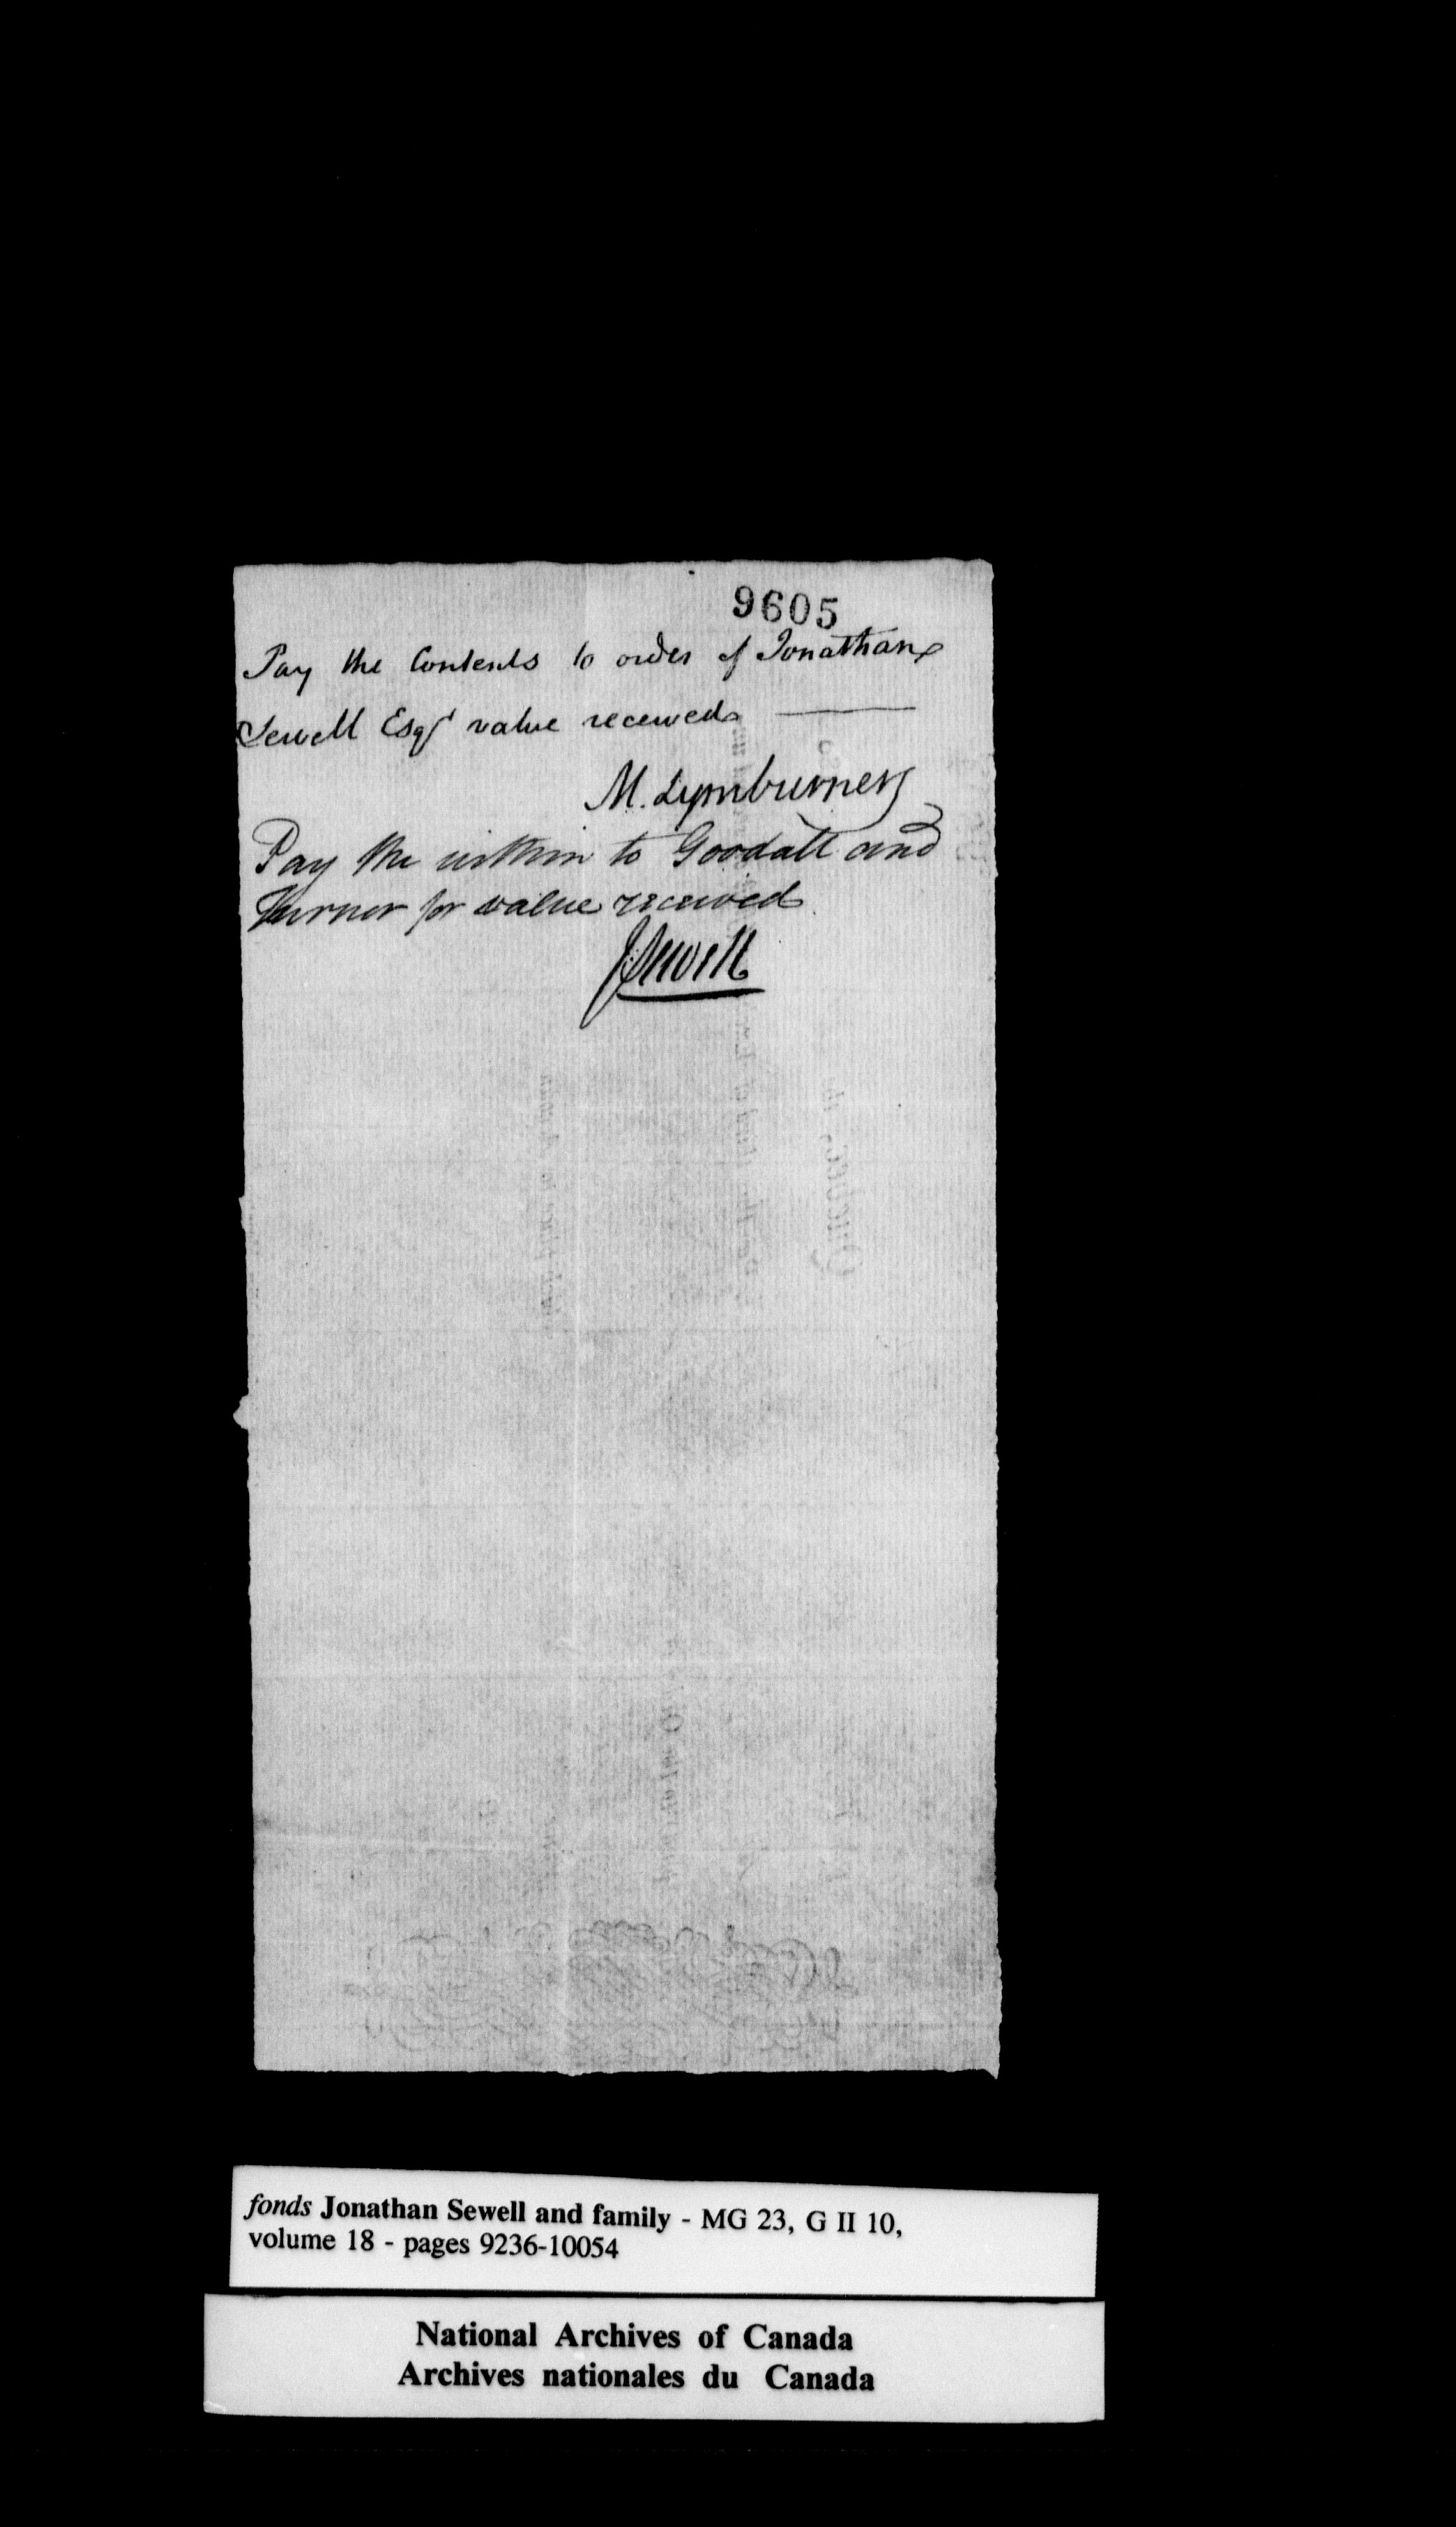 9605
Pay the Contents to order of Jonathan
Sewell Esqr value received
M. Lymburner
Pay the within to Goodall and
Turner for value received
J Sewell
fonds Jonathan Sewell and family - MG 23, G II 10,
volume 18 - pages 9236-10054
National Archives of Canada
Archives nationales du Canada